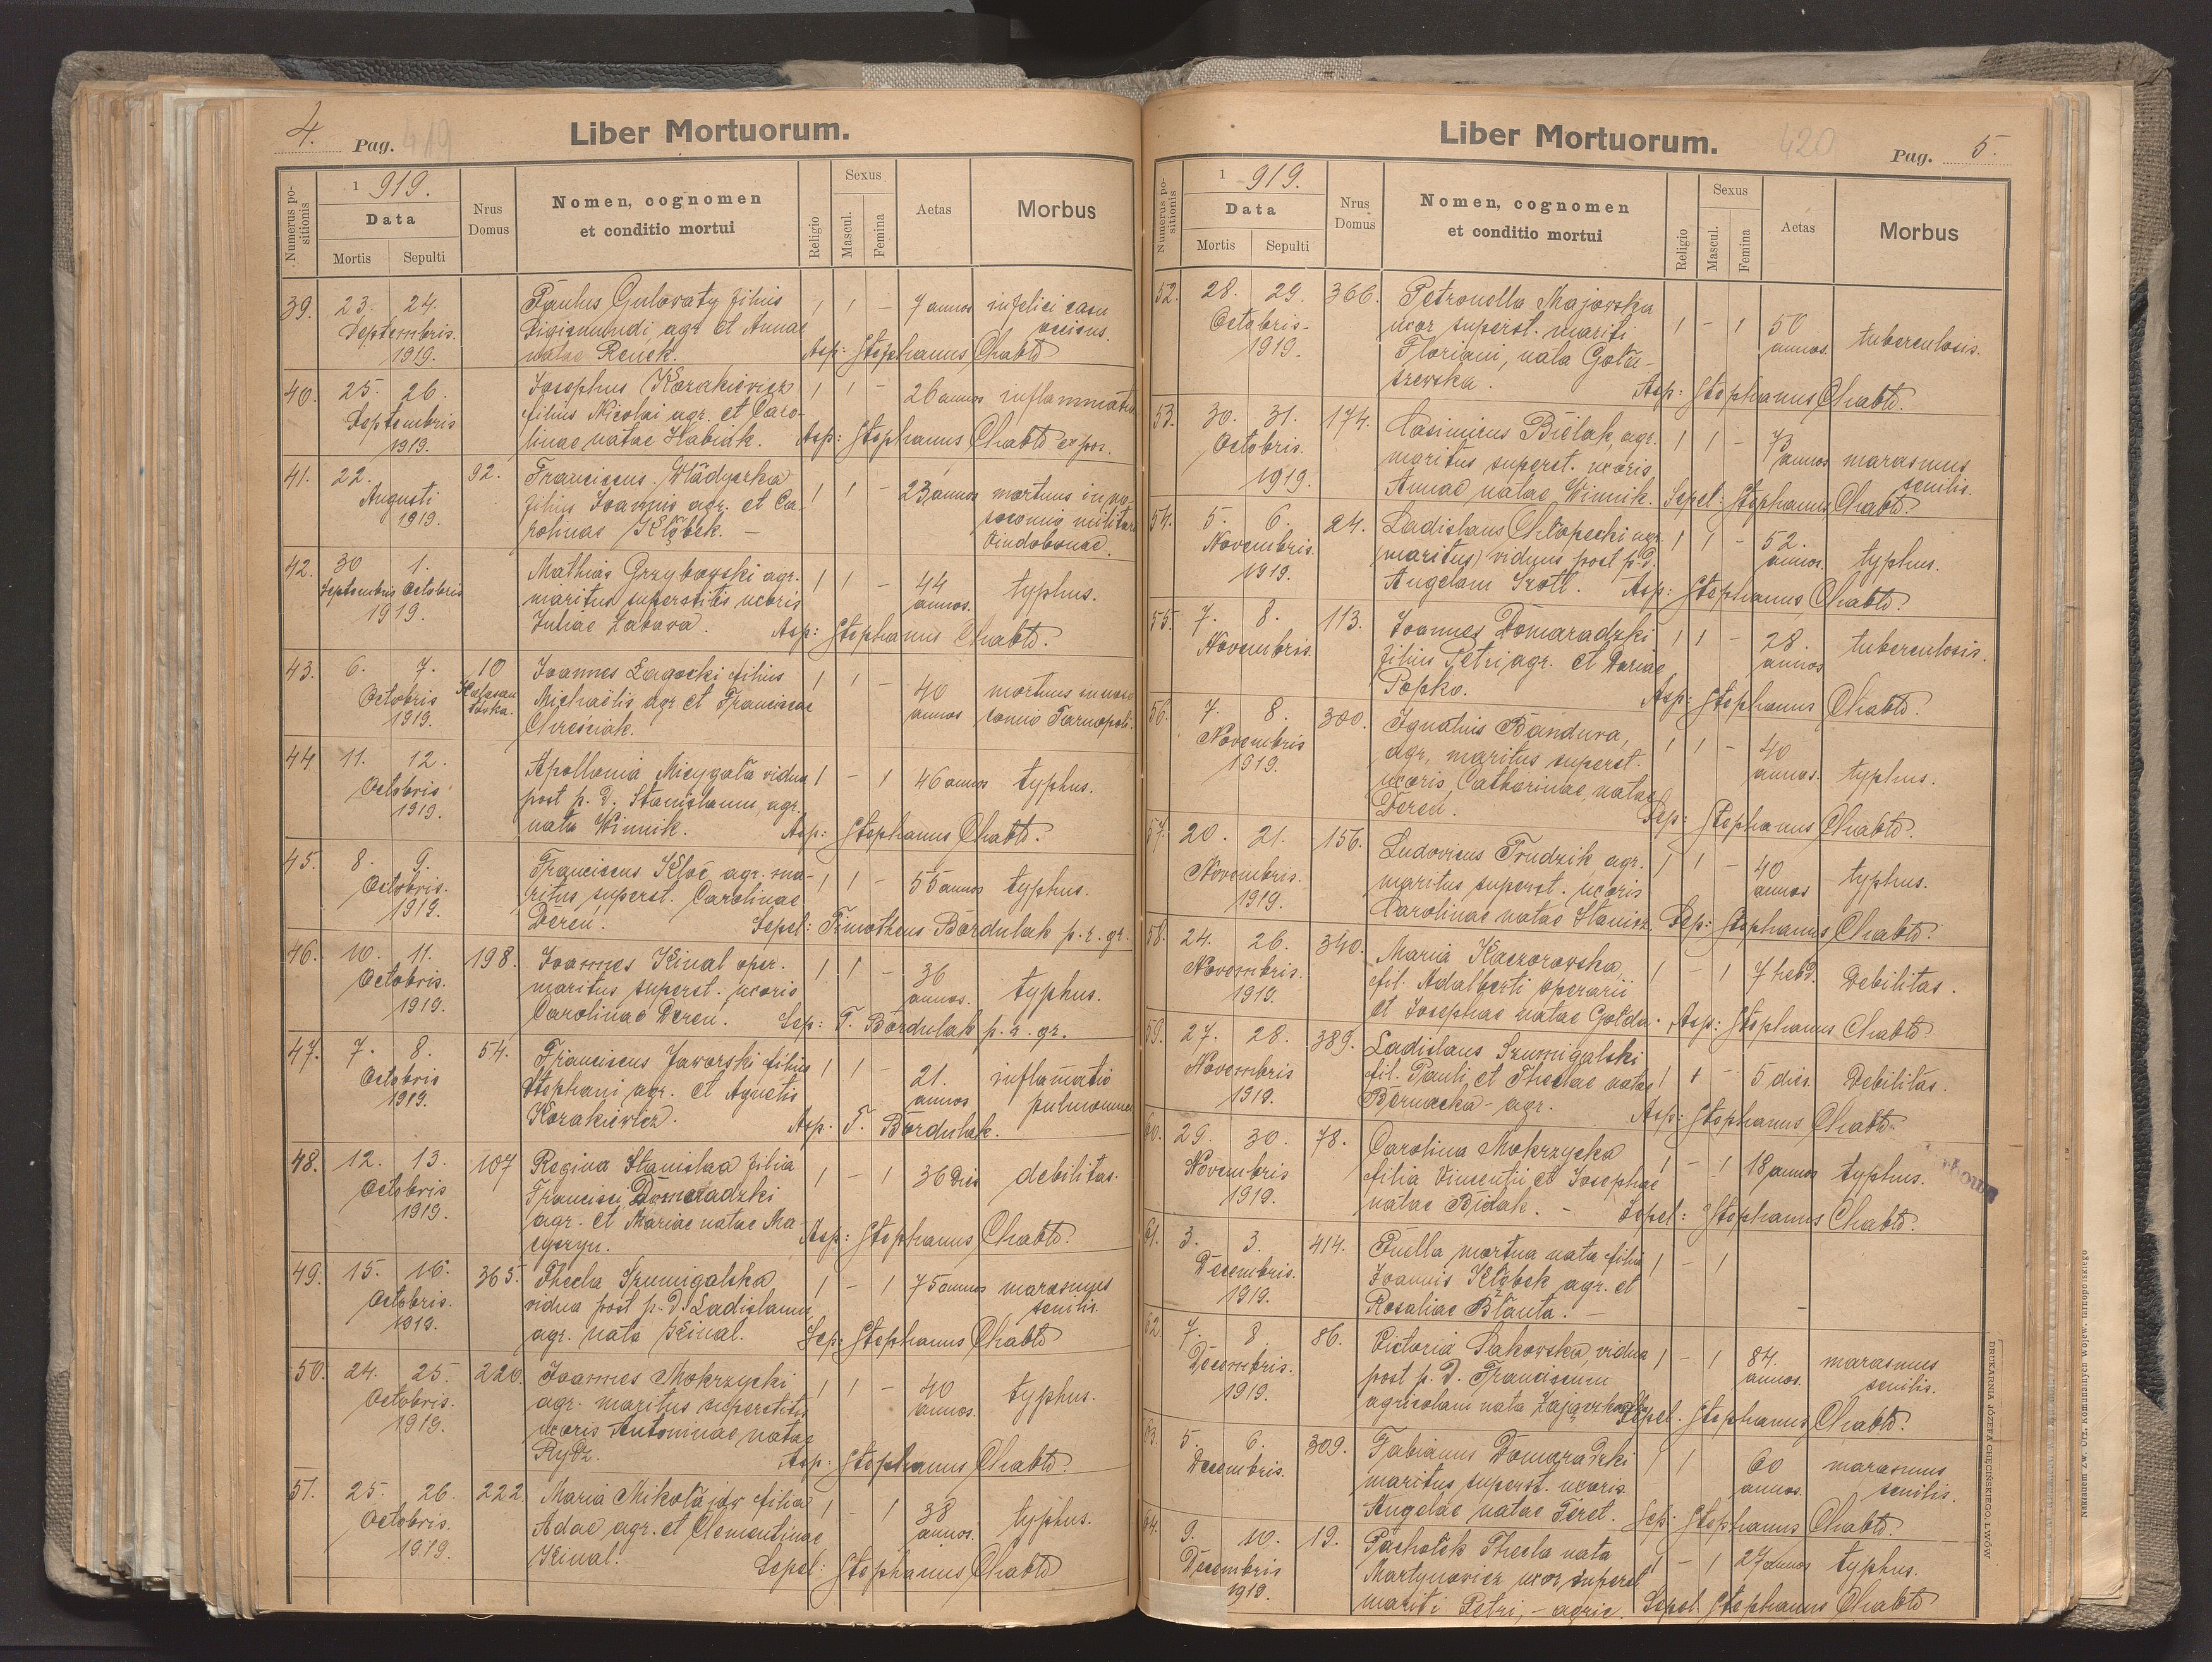 4. Pag. 419
Liber Mortuorum.
Numerus positionis
1919.
Data
Mortis Sepulti
Nrus Domus
Nomen, cognomen et conditio mortui
Religio
Sexus
Mascul. Femina
Aetas
Morbus
39. 23. 24. Paulus Gulowaty filius 1 1 – 7 annos infelici casu
Septembris. Sigismundi agr. et Annae occisus.
1919. natae Renek. Asp: Stephanus Chabło
40. 25. 26. Josephus Kozakiewicz 1 1 – 26 annos inflammatio
Septembris filius Nicolai agr. et Caro-
1919. linae natae Habiak. Asp: Stephanus Chabło expos.
41. 22. 92. Franciscus Władyczka 1 1 – 23 annos mortuus in no-
Augusti filius Joannis agr. et Ca- socomio militari
1919. rolinae Kłąbek. – Vindobonae.
42. 30 1. Mathias Grzybowski agr. 1 1 – 44 annos. typhus.
Septembris Octobris maritus superstitis uxoris
1919. Juliae Zabawa. Asp: Stephanus Chabło.
43. 6. 7. 10 Joannes Zagocki filius 1 1 – 40 annos mortuus in noso-
Octobris Michaëlis agr et Franciscae comio Tarnopoli.
1919. Chreściak.
44 11. 12. Apollonia Micygała vidua 1 – 1 46 annos typhus.
Octobris post p. d. Stanislaum agr.
1919. nata Winnik. Asp: Stephanus Chabło.
45. 8. 9. Franciscus Kloc agr. ma- 1 1 – 55 annos typhus.
Octobris. ritus superst. Carolinae
1919. Dereń. Sepel: Timotheus Bordulak p. r. gr.
46. 10. 11. 198. Joannes Kinal oper. 1 1 – 36 annos. typhus.
Octobris. maritus superst. uxoris
1919. Carolinae Deren. Sep: T. Bordulak p. r. gr.
47. 7. 8. 54. Franciscus Jaworski filius 1 1 – 21. annos inflamatio
Octobris Stephani agr. et Agnetis pulmonum
1919. Kozakiewicz. Asp. T. Bordulak.
48. 12. 13. 107 Regina Stanislaa filia 1 – 1 36 dies debilitas.
Octobris Francisci Domaradzki
1919. agr. et Mariae natae Ma-
cyszyn. Asp: Stephanus Chabło.
49. 15. 16. 365. Thecla Szumigalska 1 – 1 75 annos marasmus
Octobris. vidua post p. d. Ladislaum senilis.
1919. agr. nata Kinal. Sep: Stephanus Chabło
50. 24. 25. 220. Joannes Mokrzycki 1 1 – 40 annos. typhus.
Octobris. agr. maritus superstitis
1919. uxoris Antoninae natae
Rydz. Asp: Stephanus Chabło.
51. 25. 26. 222. Maria Mikołajów filia 1 – 1 38 annos. typhus.
Octobris. Adae agr. et Clementinae
1919. Kinal. Sepel: Stephanus Chabło
Liber Mortuorum.
420 Pag. 5.
Numerus positionis
1919.
Data
Mortis Sepulti
Nrus Domus
Nomen, cognomen et conditio mortui
Religio
Sexus
Mascul. Femina
Aetas
Morbus
52. 28. 29. 366. Petronella Majowska
Octobris- uxor superst. mariti 1 – 1 50 annos. tuberculosis.
1919. Floriani, nata Gołu-
szewska. Asp: Stephanus Chabło.
53. 30. 31. 174. Casimirus Bielak, agr. 1 1 – 73 annos marasmus
Octobris. maritus superst. uxoris senilis.
1919. Annae natae Winnik. Sepel: Stephanus Chabło.
54. 5. 6. 24. Ladislaus Chłopecki agr. 1 1 – 52. annos. typhus.
Novembris. (maritus) viduus post p. d.
1919. Angelam Szott. Asp: Stephanus Chabło.
55. 7. 8. 113. Joannes Domaradzki 1 1 – 28. annos tuberculosis.
Novembris. filius Petri agr. et Dariae
Popko. Asp: Stephanus Chabło.
56. 7. 8. 380. Ignatius Bandura, 1 1 – 40 annos. typhus.
Novembris agr, maritus superst.
1919. uxoris Catharinae, natae
Deren. Sep: Stephanus Chabło.
57. 20. 21. 156. Ludovicus Trudzik agr. 1 1 – 40 annos typhus.
Novembris. maritus superst. uxoris
1919. Carolinae natae Stanisz. Sep: Stephanus Chabło.
58. 24. 26. 340. Maria Kaczorowska, 1 – 1 7 hebd. Debilitas.
Novembris. fil. Adalberti operarii
1919. et Josephae natae Gołda. Asp: Stephanus Chabło
59. 27. 28. 389. Ladislaus Szumigalski
Novembris fil. Pauli et Theclae natae 1 1 – 5 dies. Debilitas.
1919. Bernacka – agr. Asp: Stephanus Chabło.
60. 29. 30. 78. Carolina Mokrzycka 1 – 1 18 annos typhus.
Novembris filia Vincentii et Josephae
1919. natae Bidak. – Sepel: Stephanus Chabło.
61. 3. 3. 414. Puella mortua nata filia 1 – 1
Decembris. Joannis Kłąbek agr. et
1919. Rosaliae Błauta. – –
62. 7. 8 86. Victoria Sakowska, vidua 1 – 1 84. annos. marasmus
Decembris. post p. d. Franciscum senilis.
1919. agricolam nata Zajączkowska Sepel. Stephanus Chabło.
63. 5. 6. 309. Fabianus Domaradzki 1 1 60 annos. marasmus
Decembris. maritus superst. uxoris senilis.
Angelae natae Feret. Sep: Stephanus Chabło.
64. 9. 10. 19. Pachołek Thecla nata 1 – 1 27 annos typhus.
Decembris Martynowicz uxor superst
1919. mariti Petri, – agric. Sepel. Stephanus Chabło
DRUKARNIA JÓZEFA CIĘCEŃSKIEGO, LWÓW
Nakładem Zw. Urz. Komunalnych Wojew. tarnopolskiego